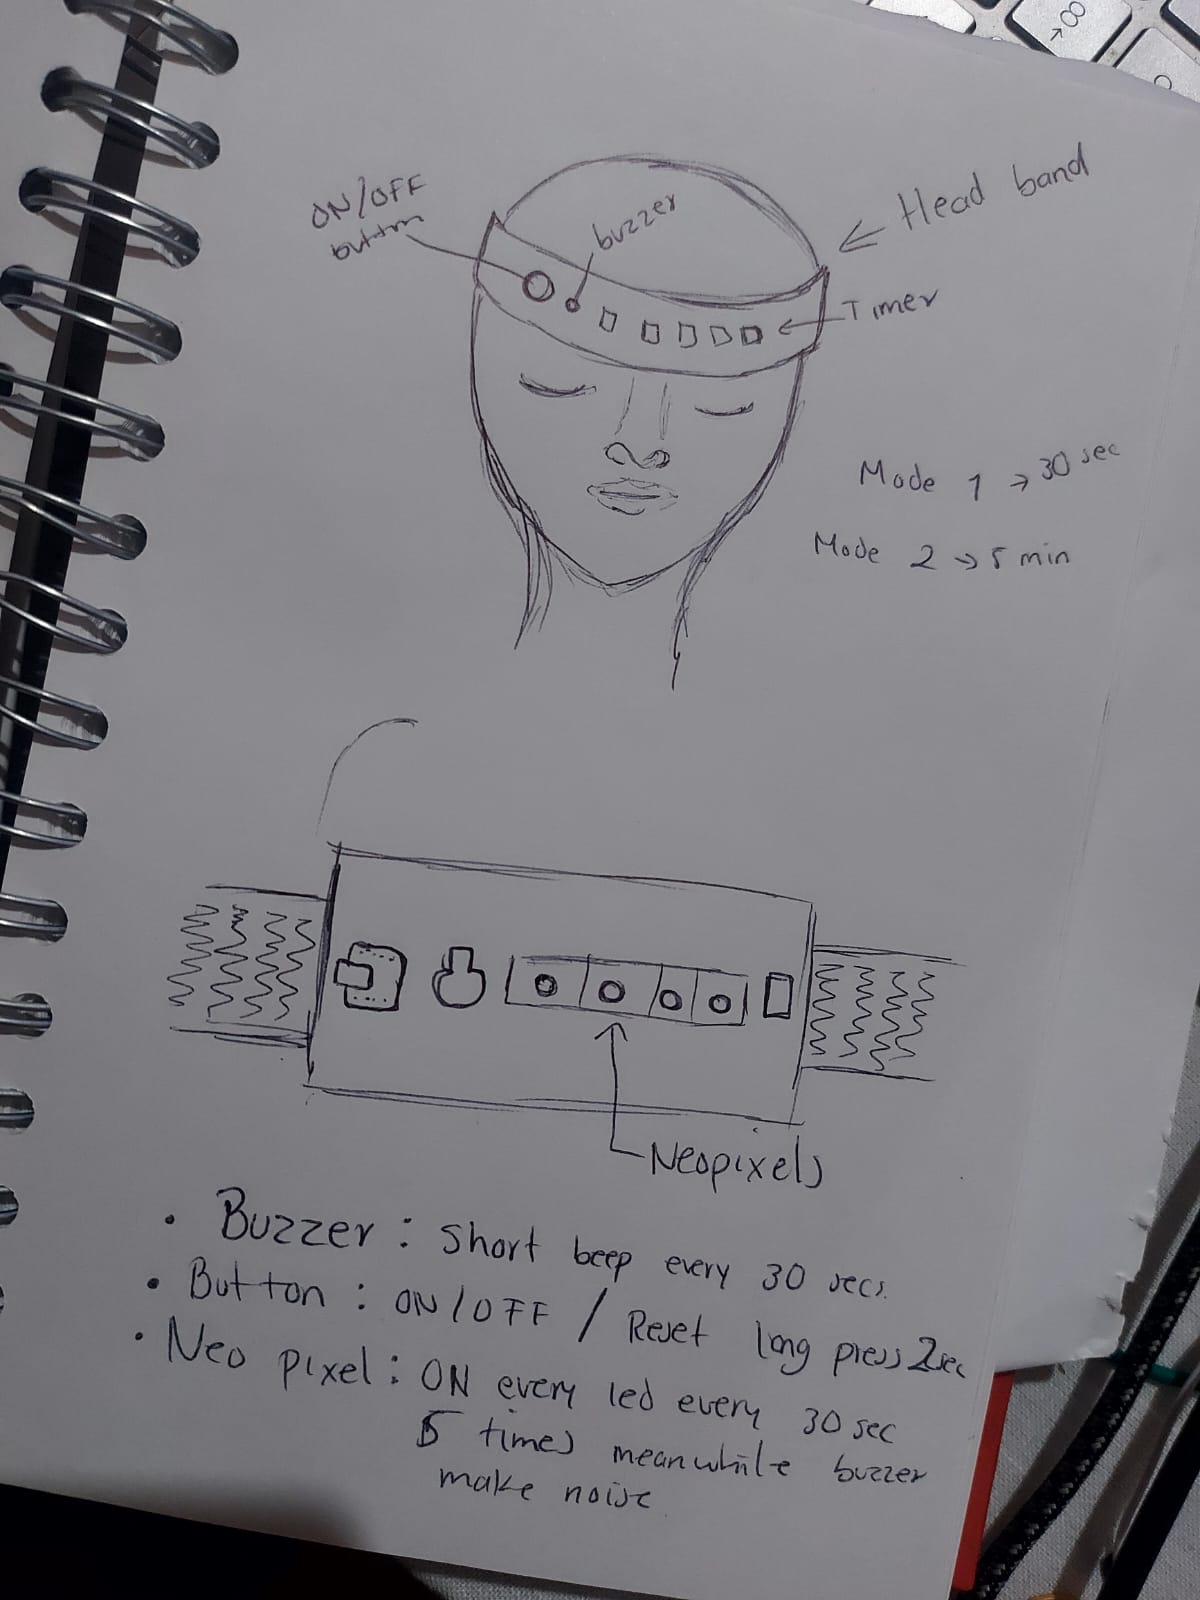 ON/OFF
button
buzzer
← Head band
← Timer
Mode 1 → 30 sec
Mode 2 → 5 min
Neopixels
• Buzzer : short beep every 30 secs.
• Button : ON/OFF / Reset long press 2sec
• Neo pixel : ON every led every 30 sec
5 times meanwhile buzzer
make noise